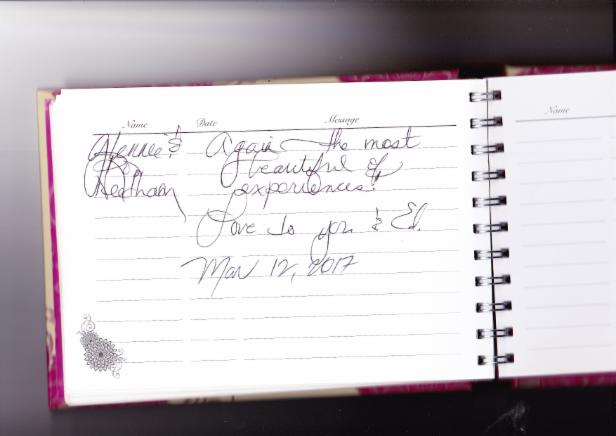 Name Date Message
& Again - the most
beautiful of
experiences!
Love to you & Ed.
Mar 12, 2017
Name